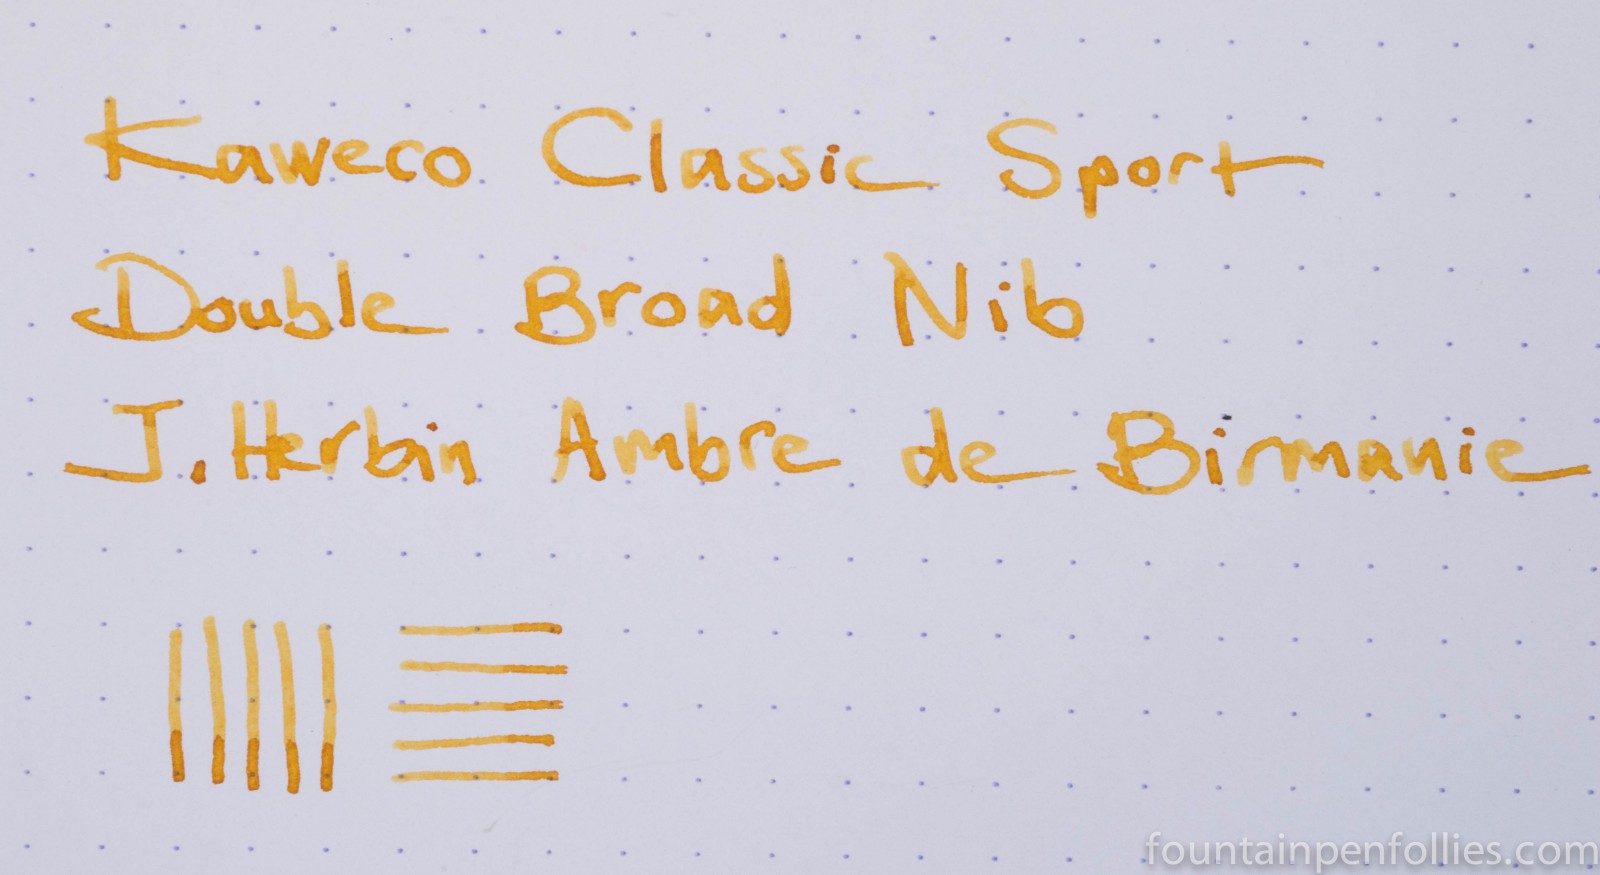 Kaweco Classic Sport
Double Broad Nib
J. Herbin Ambre de Birmanie
fountainpenfollies.com